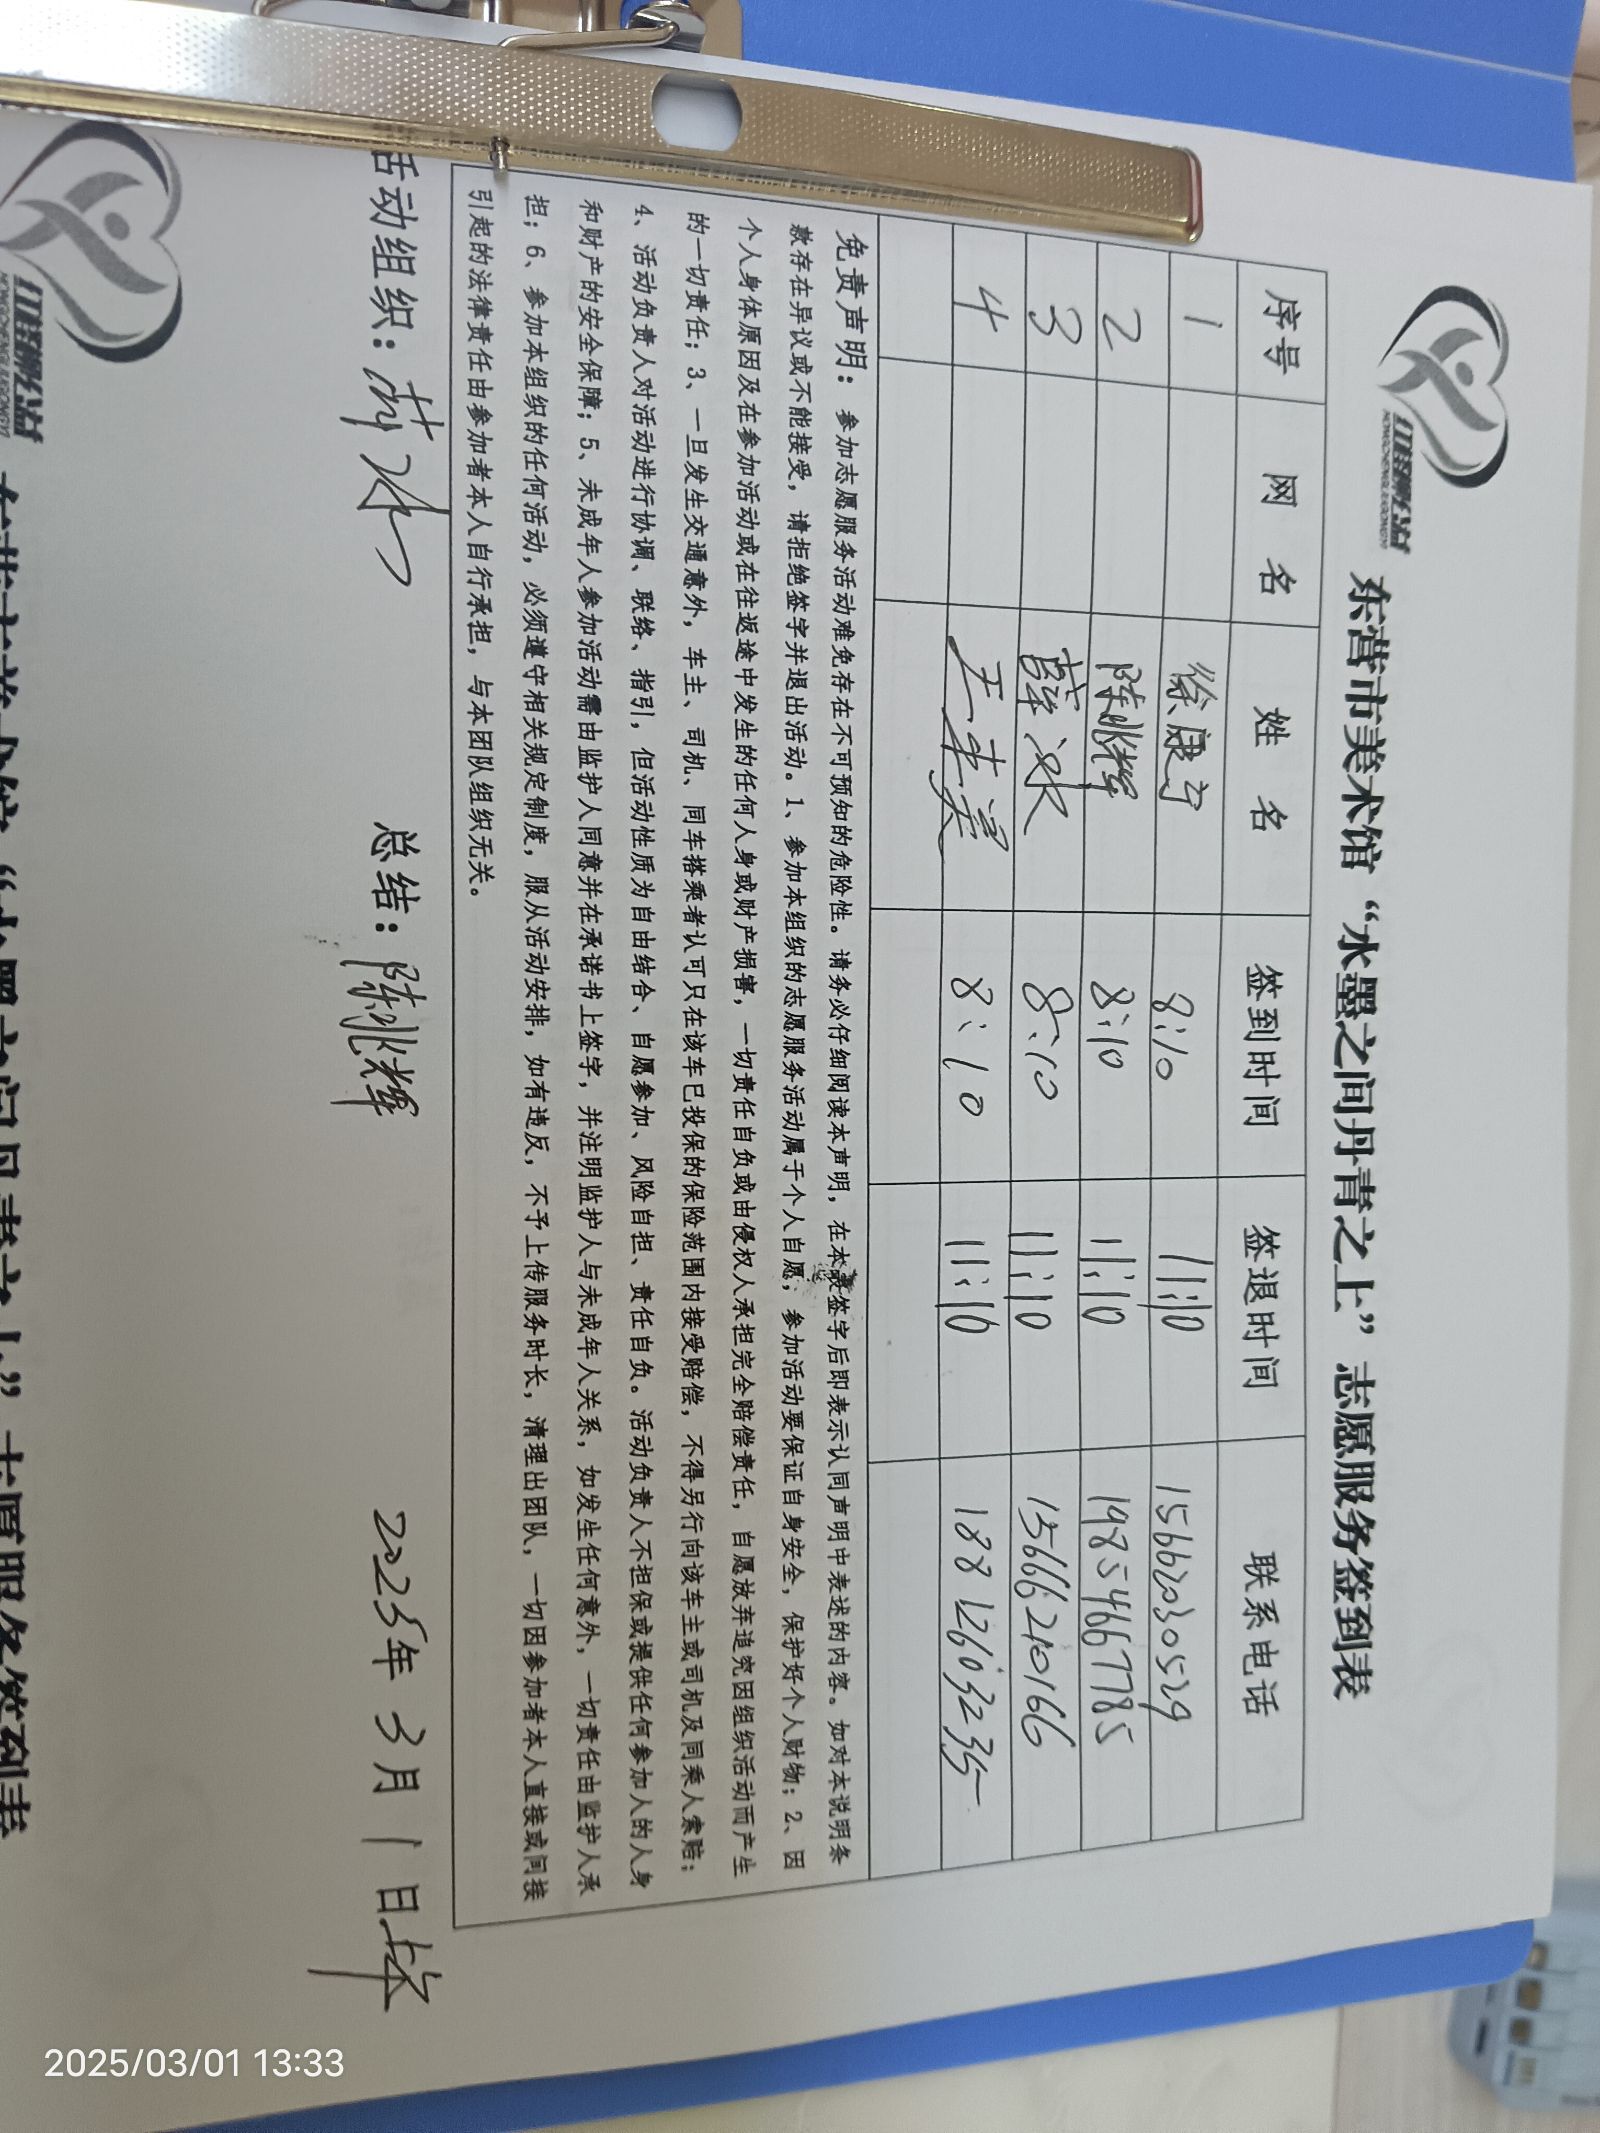 东营市美术馆“水墨之间丹青之上”志愿服务签到表
序号 网 名 姓 名 签到时间 签退时间 联系电话
1 徐康宁 8:10 11:10 15662030529
2 陈兆辉 8:10 11:10 19854667785
3 薛冰 8:10 11:10 15666210166
4 8:10 11:10 18812603235
免责声明：参加志愿服务活动难免存在不可预知的危险性。请务必仔细阅读本声明，在本表签字后即表示认同声明中表述的内容。如对本说明条
款存在异议或不能接受，请拒绝签字并退出活动。1、参加本组织的志愿服务活动属于个人自愿，参加活动要保证自身安全，保护好个人财物；2、因
个人身体原因及在参加活动或在往返途中发生的任何人身或财产损害，一切责任自负或由侵权人承担完全赔偿责任，自愿放弃追究因组织活动而产生
的一切责任；3、一旦发生交通意外，车主、司机、同车搭乘者认可只在该车已投保的保险范围内接受赔偿，不得另行向该车主或司机及同乘人索赔；
4、活动负责人对活动进行协调、联络、指引，但活动性质为自由结合、自愿参加、风险自担、责任自负。活动负责人不担保或提供任何参加人的人身
和财产的安全保障；5、未成年人参加活动需由监护人同意并在承诺书上签字，并注明监护人与未成年人关系，如发生任何意外，一切责任由监护人承
担；6、参加本组织的任何活动，必须遵守相关规定制度，服从活动安排，如有违反，不予上传服务时长，清理出团队，一切因参加者本人直接或间接
引起的法律责任由参加者本人自行承担，与本团队组织无关。
活动组织：薛冰 总结：陈兆辉 2025年 3月 1日
2025/03/01 13:33